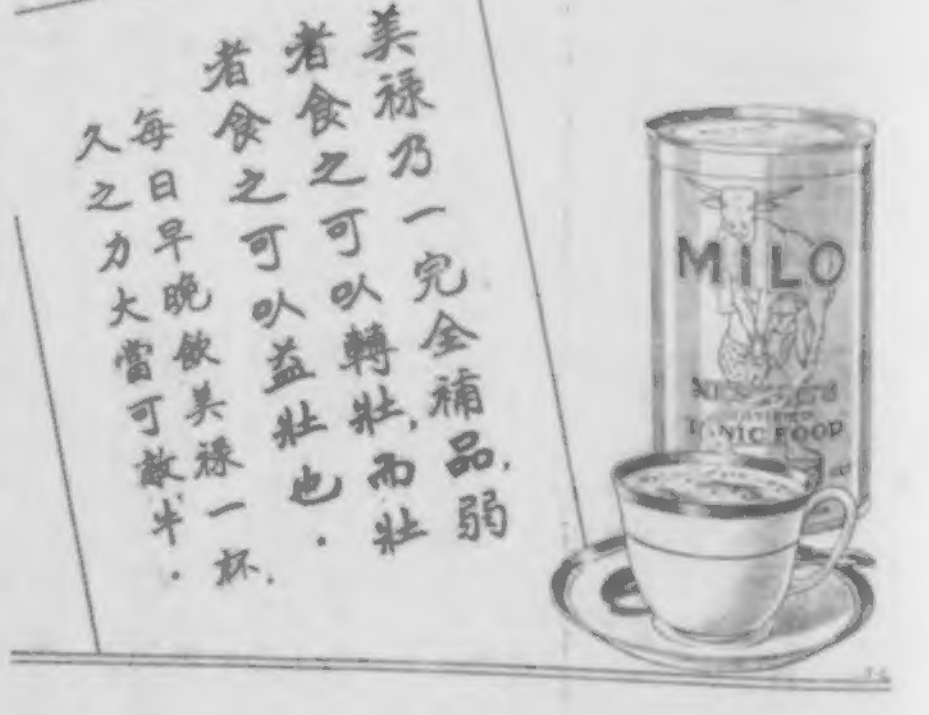 美祿乃一完全補品，弱
者食之可㕥轉壯，而壯
者食之可㕥益壯也．
每日早晚飲美祿一杯，
久之力大當可敵牛．
MILO
TONIC FOOD